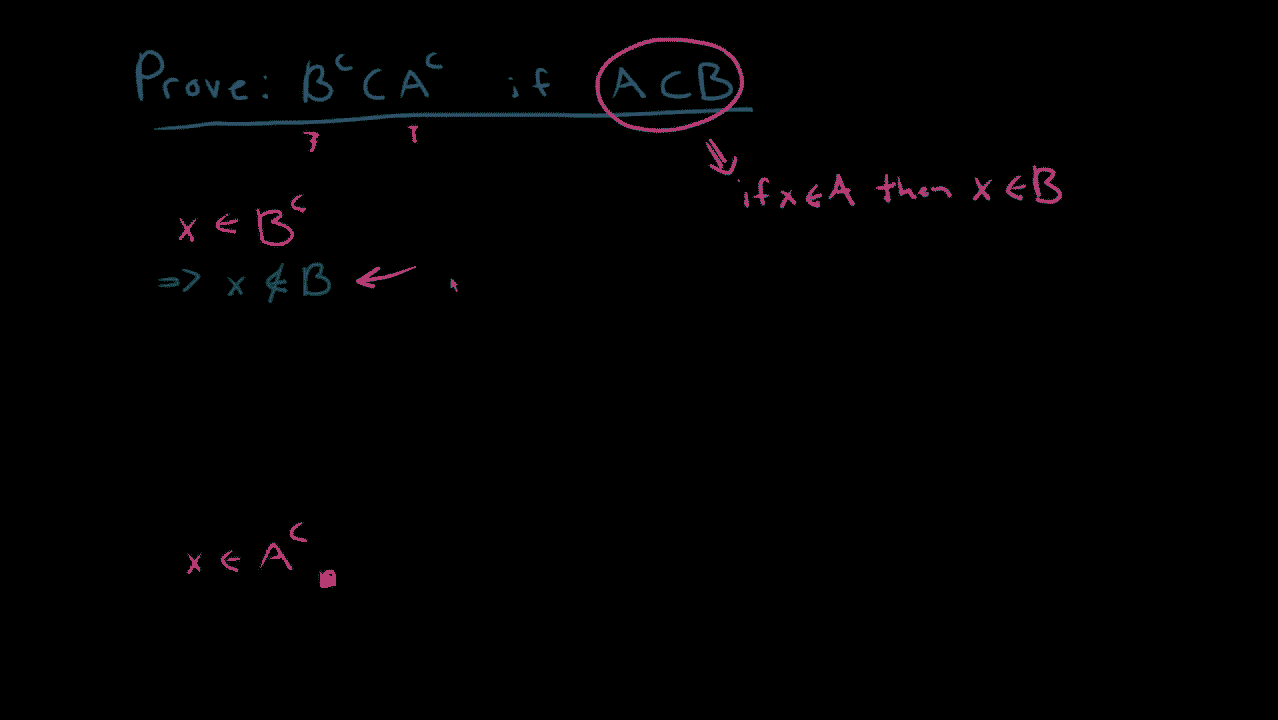 Prove: Bᶜ ⊂ Aᶜ if A ⊂ B
if x ∈ A then x ∈ B
x ∈ Bᶜ
⇒ x ∉ B
x ∈ Aᶜ